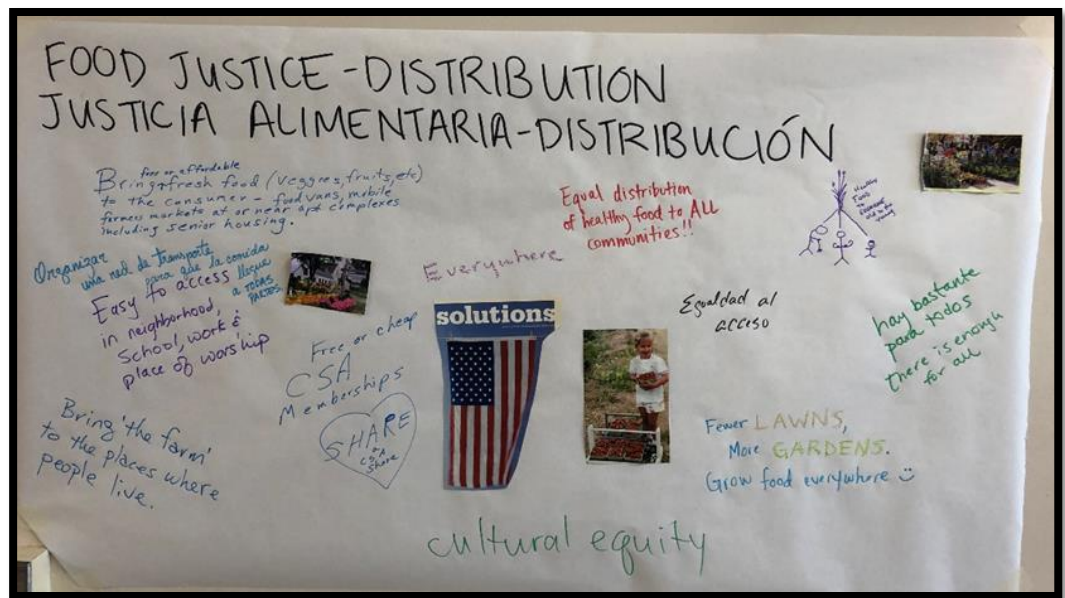 FOOD JUSTICE-DISTRIBUTION
JUSTICIA ALIMENTARIA-DISTRIBUCIÓN
free or affordable
Bring fresh food (veggies, fruits, etc)
to the consumer - food vans, mobile
farmers markets at or near apt complexes
including senior housing.
Organizar
una red de transporte
para que la comida
llegue
a TODAS
PARTES.
Easy to access
in neighborhood,
School, work &
place of worship
Bring 'the farm'
to the places where
people live.
Free or cheap
CSA
Memberships
SHARE
a
CSA
share
Everywhere
solutions
Equal distribution
of healthy food to ALL
communities!!
Healthy
Food
to
everyone
Egualdad al
acceso
hay bastante
para todos
there is enough
for all
Fewer LAWNS,
More GARDENS.
Grow food everywhere
cultural equity